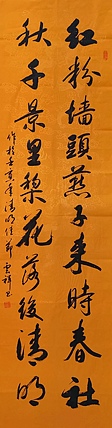 红粉墙頭燕子来時春社
秋千景里棃花落後清明
作於壬寅年清明佳節